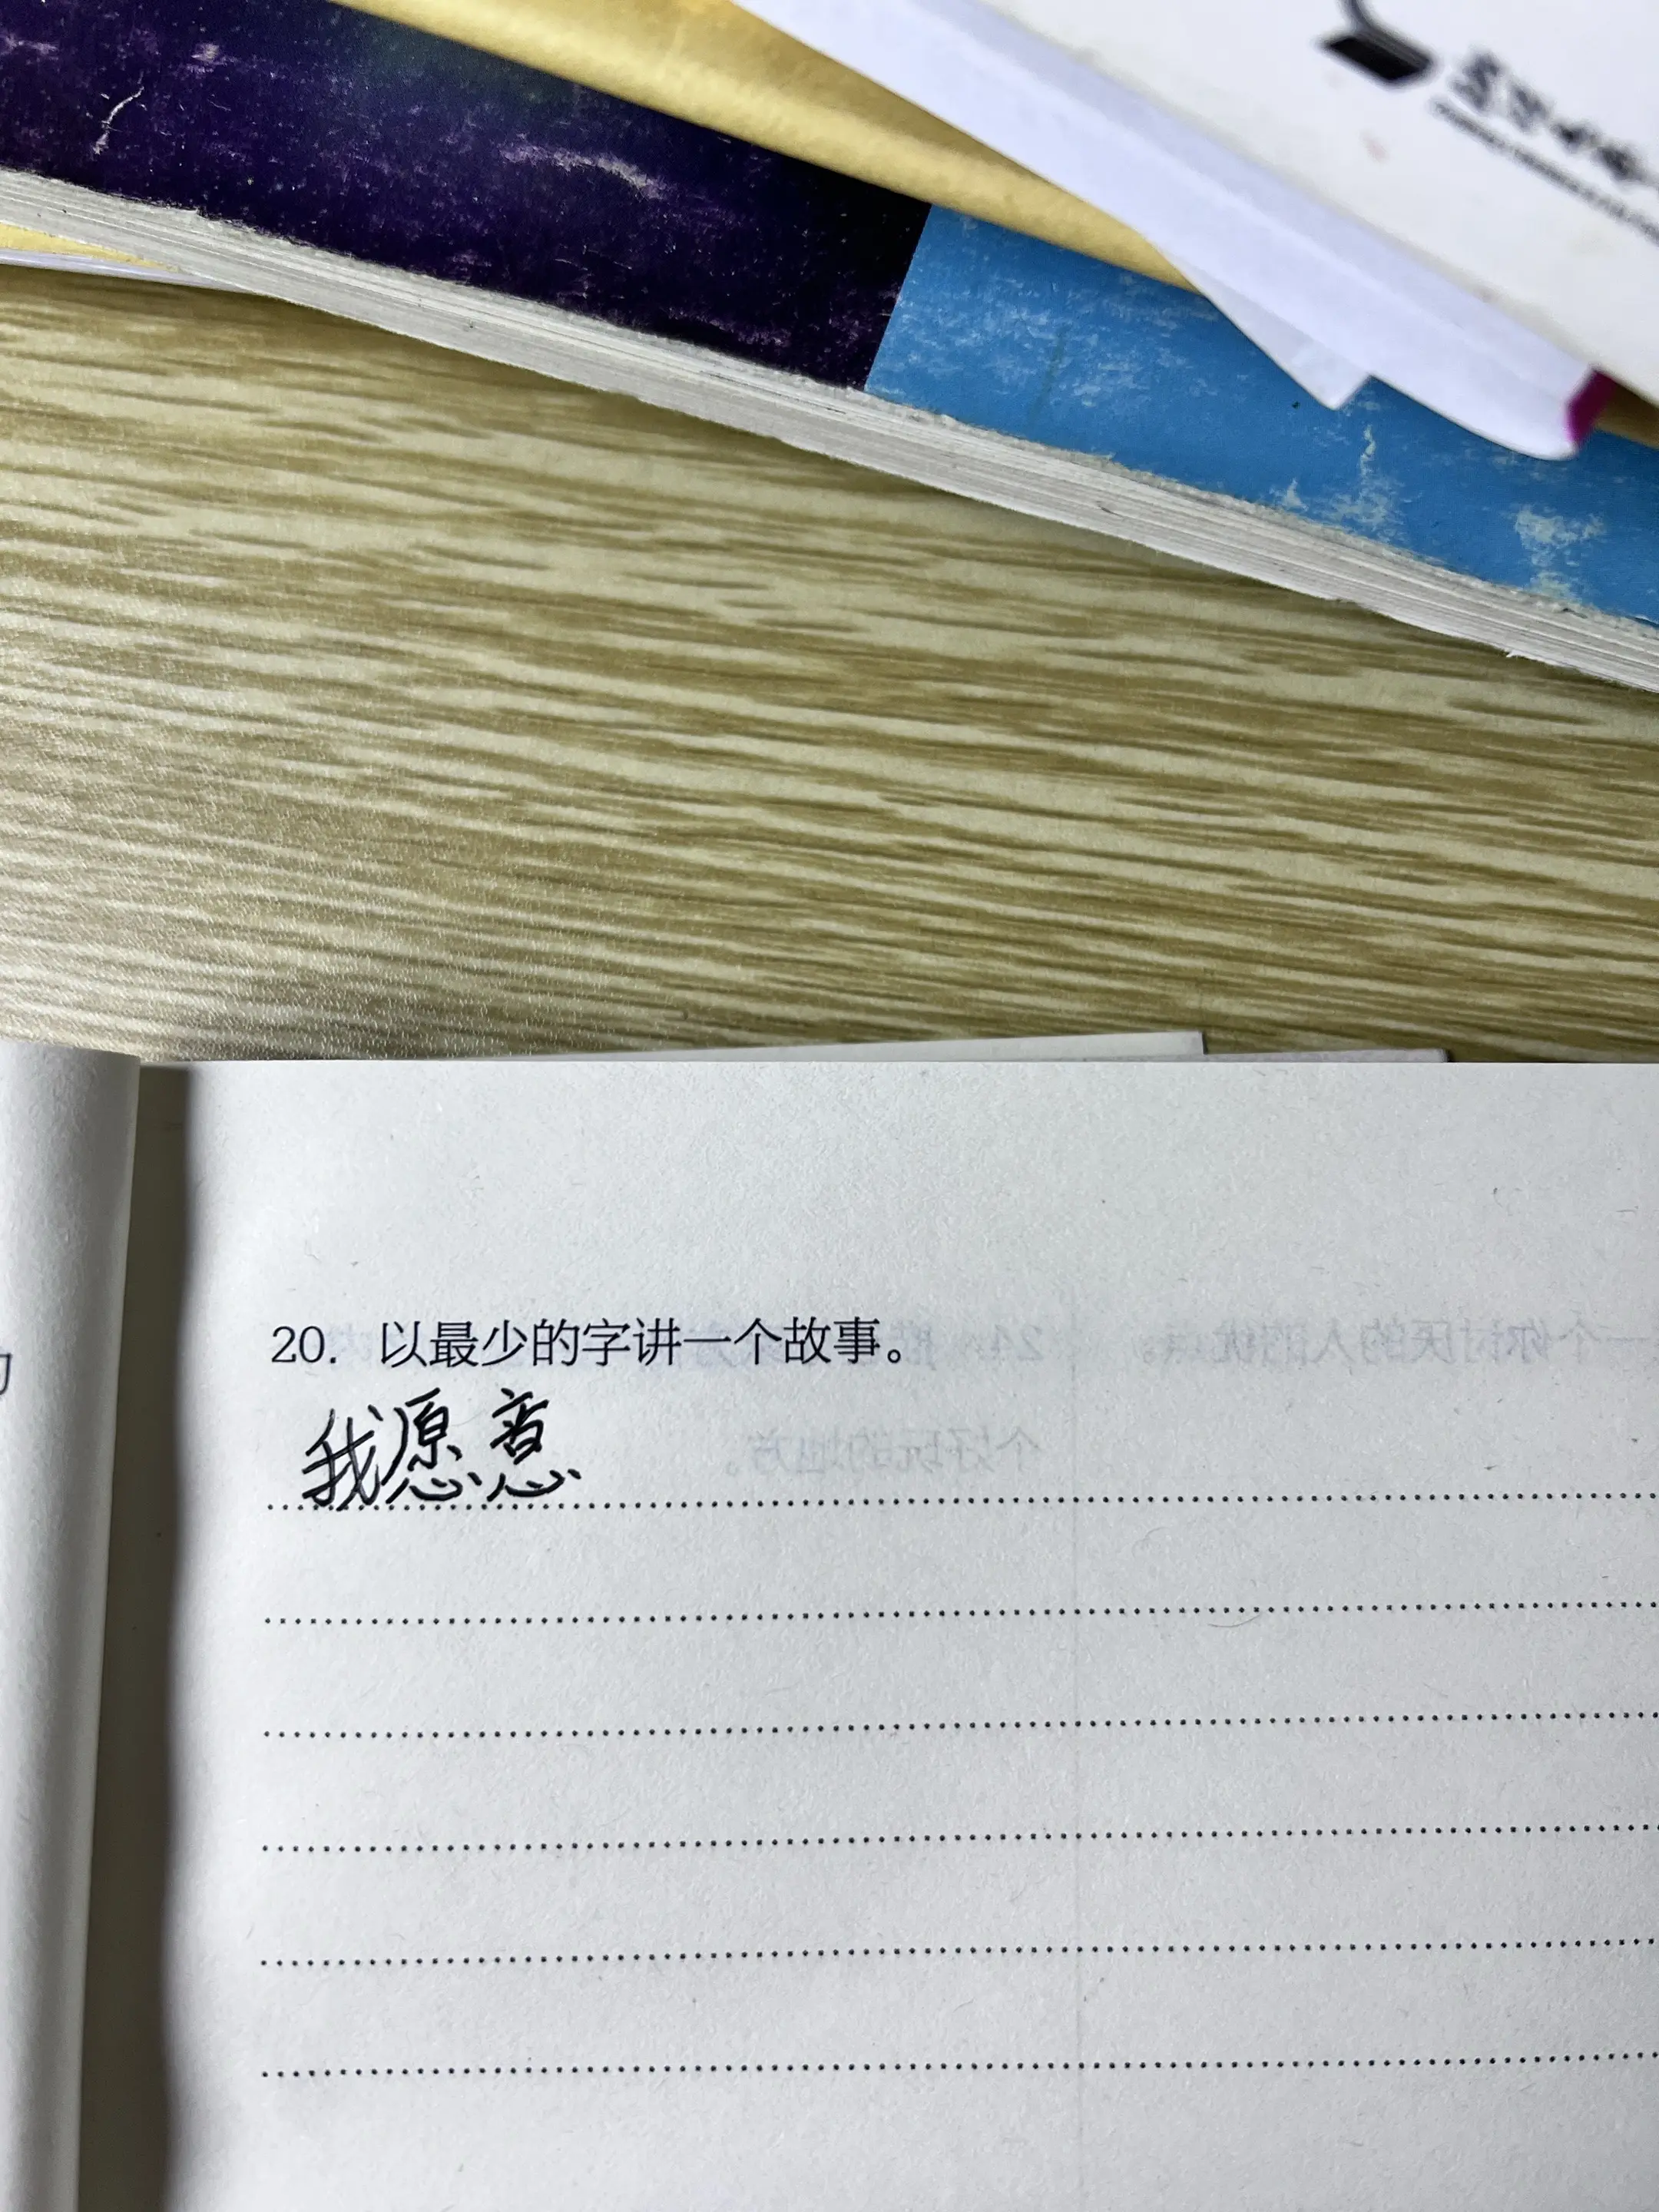 20. 以最少的字讲一个故事。
我愿意